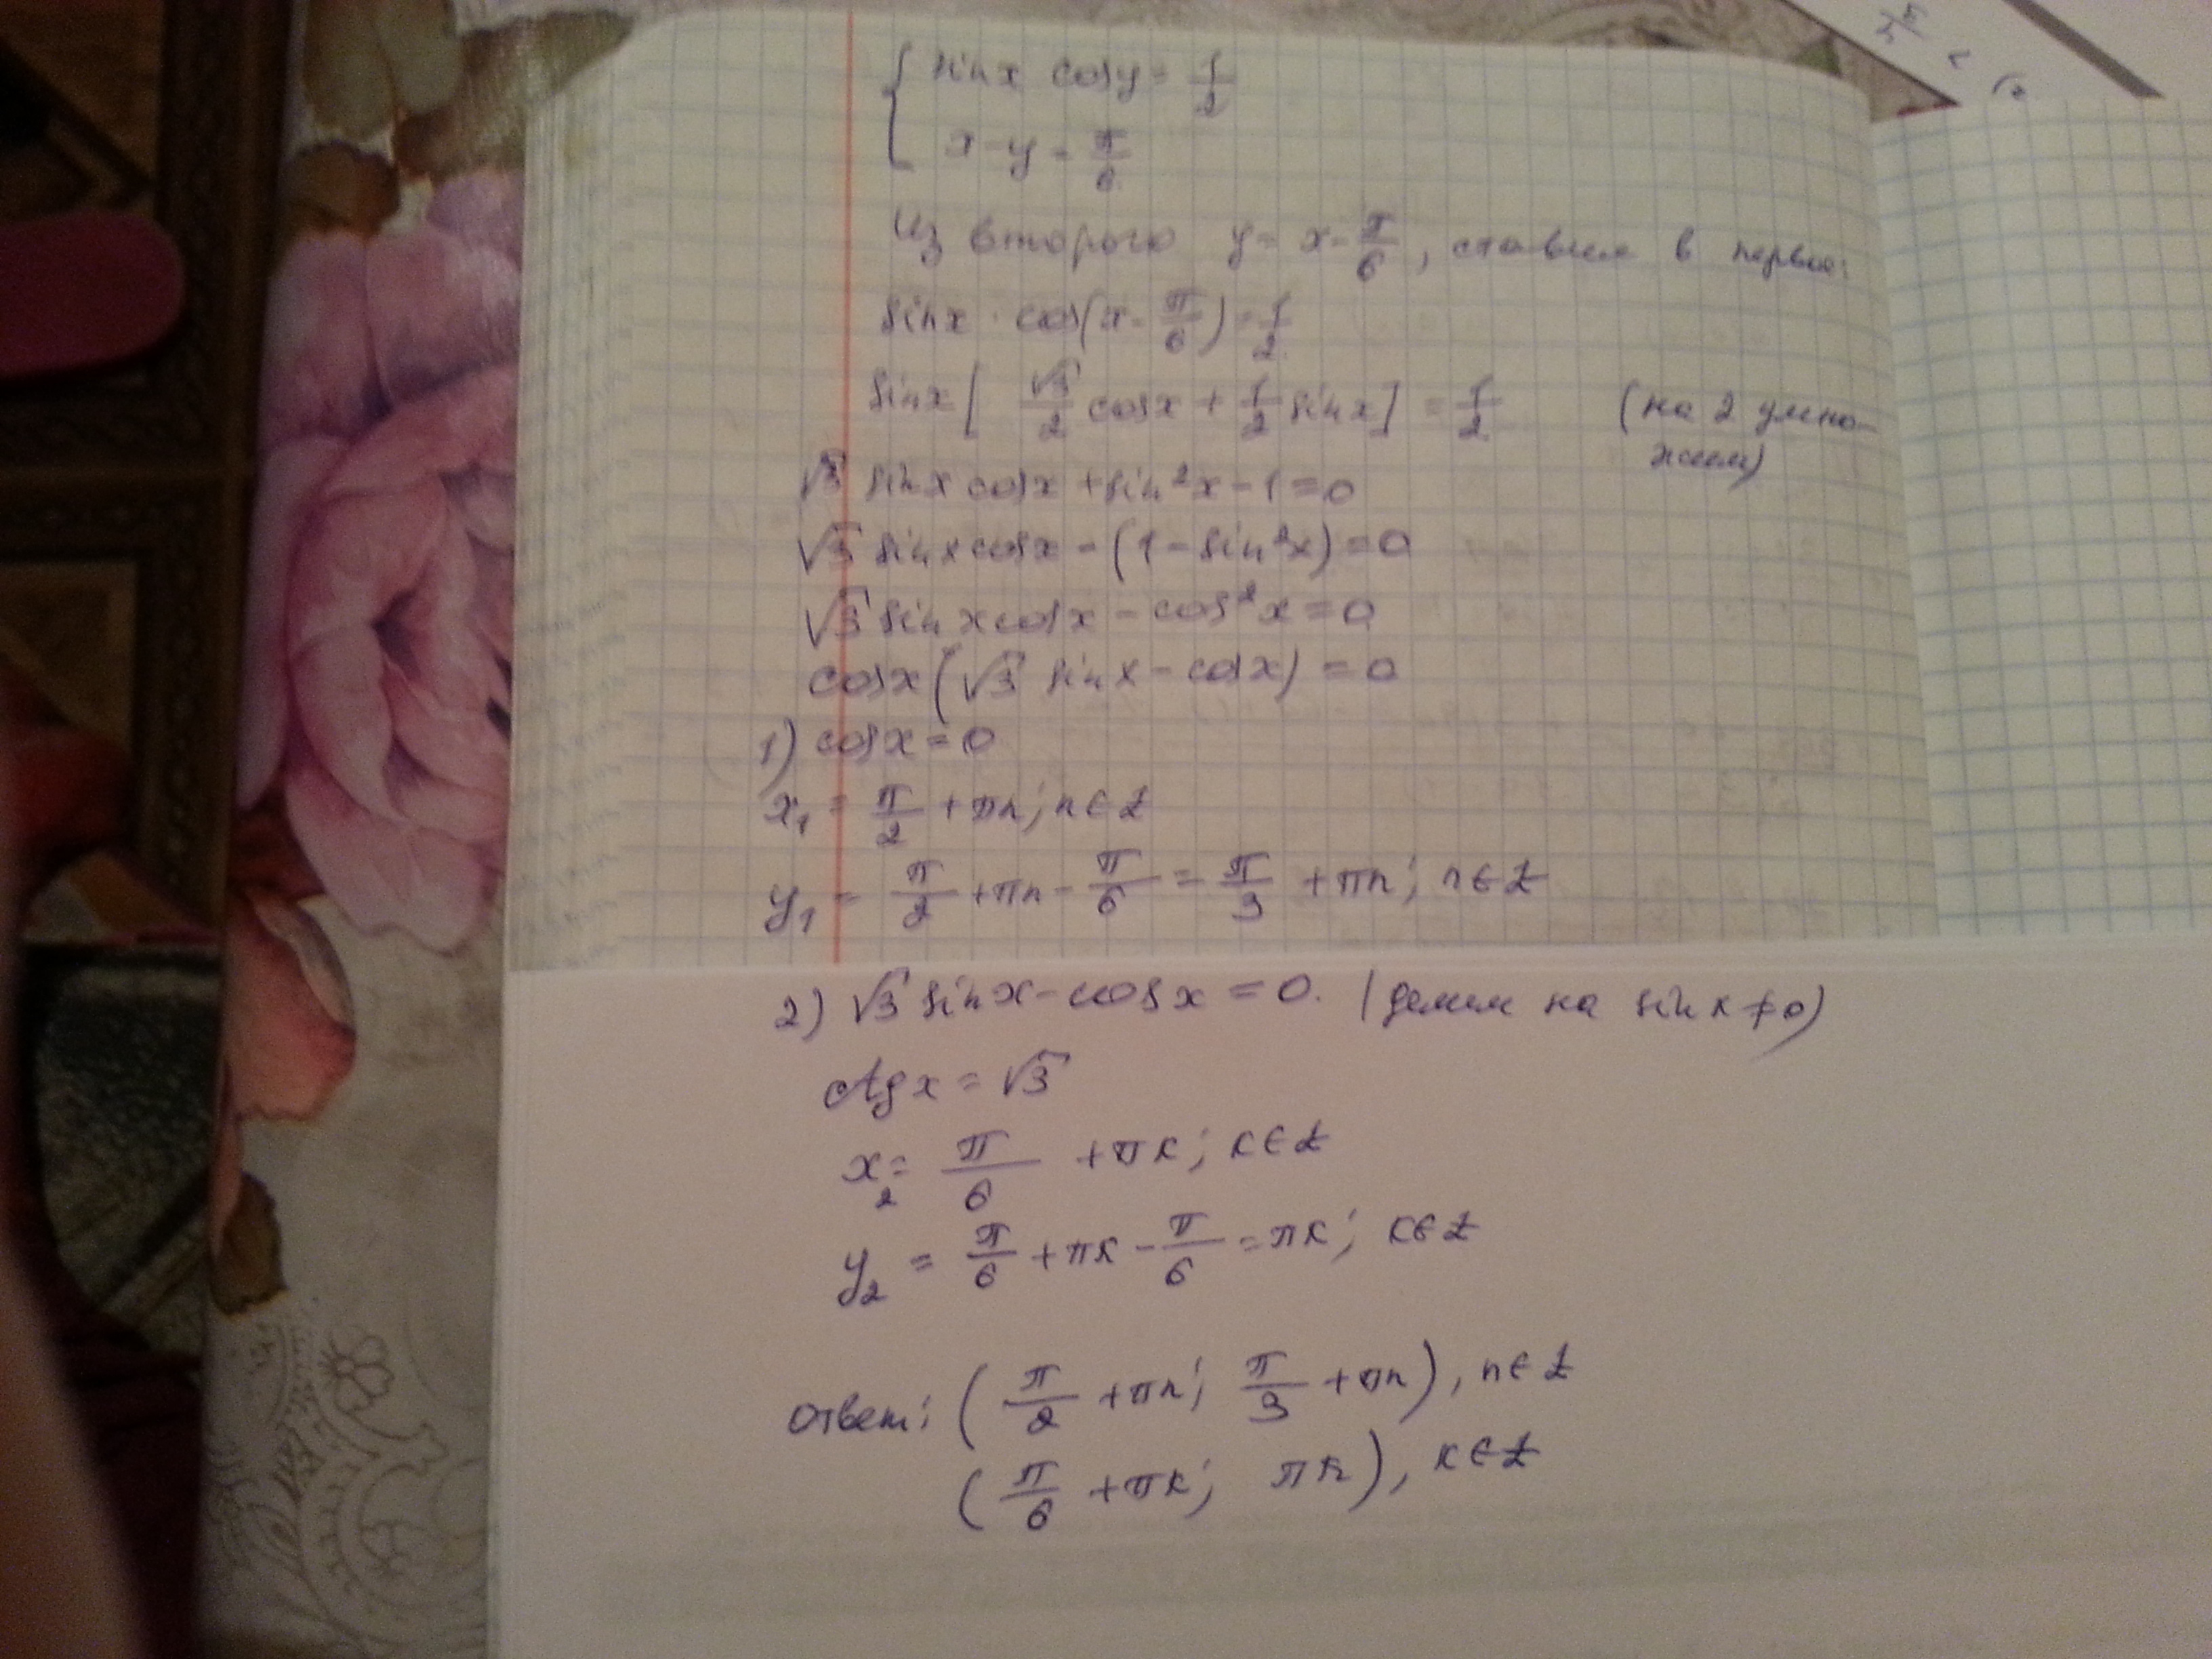 { sinx cosy = 1/2
x - y = π/6
Из второго y = x - π/6, ставим в первое:
sinx · cos(x - π/6) = 1/2
sinx[√3/2 cosx + 1/2 sinx] = 1/2 (на 2 умно-
жим)
√3 sinx cosx + sin²x - 1 = 0
√3 sinx cosx - (1 - sin²x) = 0
√3 sinx cosx - cos²x = 0
cosx(√3 sinx - cosx) = 0
1) cosx = 0
x₁ = π/2 + πn; n∈Z
y₁ = π/2 + πn - π/6 = π/3 + πn; n∈Z
2) √3 sinx - cosx = 0. (делим на sinx≠0)
ctgx = √3
x₂ = π/6 + πk; k∈Z
y₂ = π/6 + πk - π/6 = πk; k∈Z
ответ: (π/2 + πn; π/3 + πn), n∈Z
(π/6 + πk; πk), k∈Z